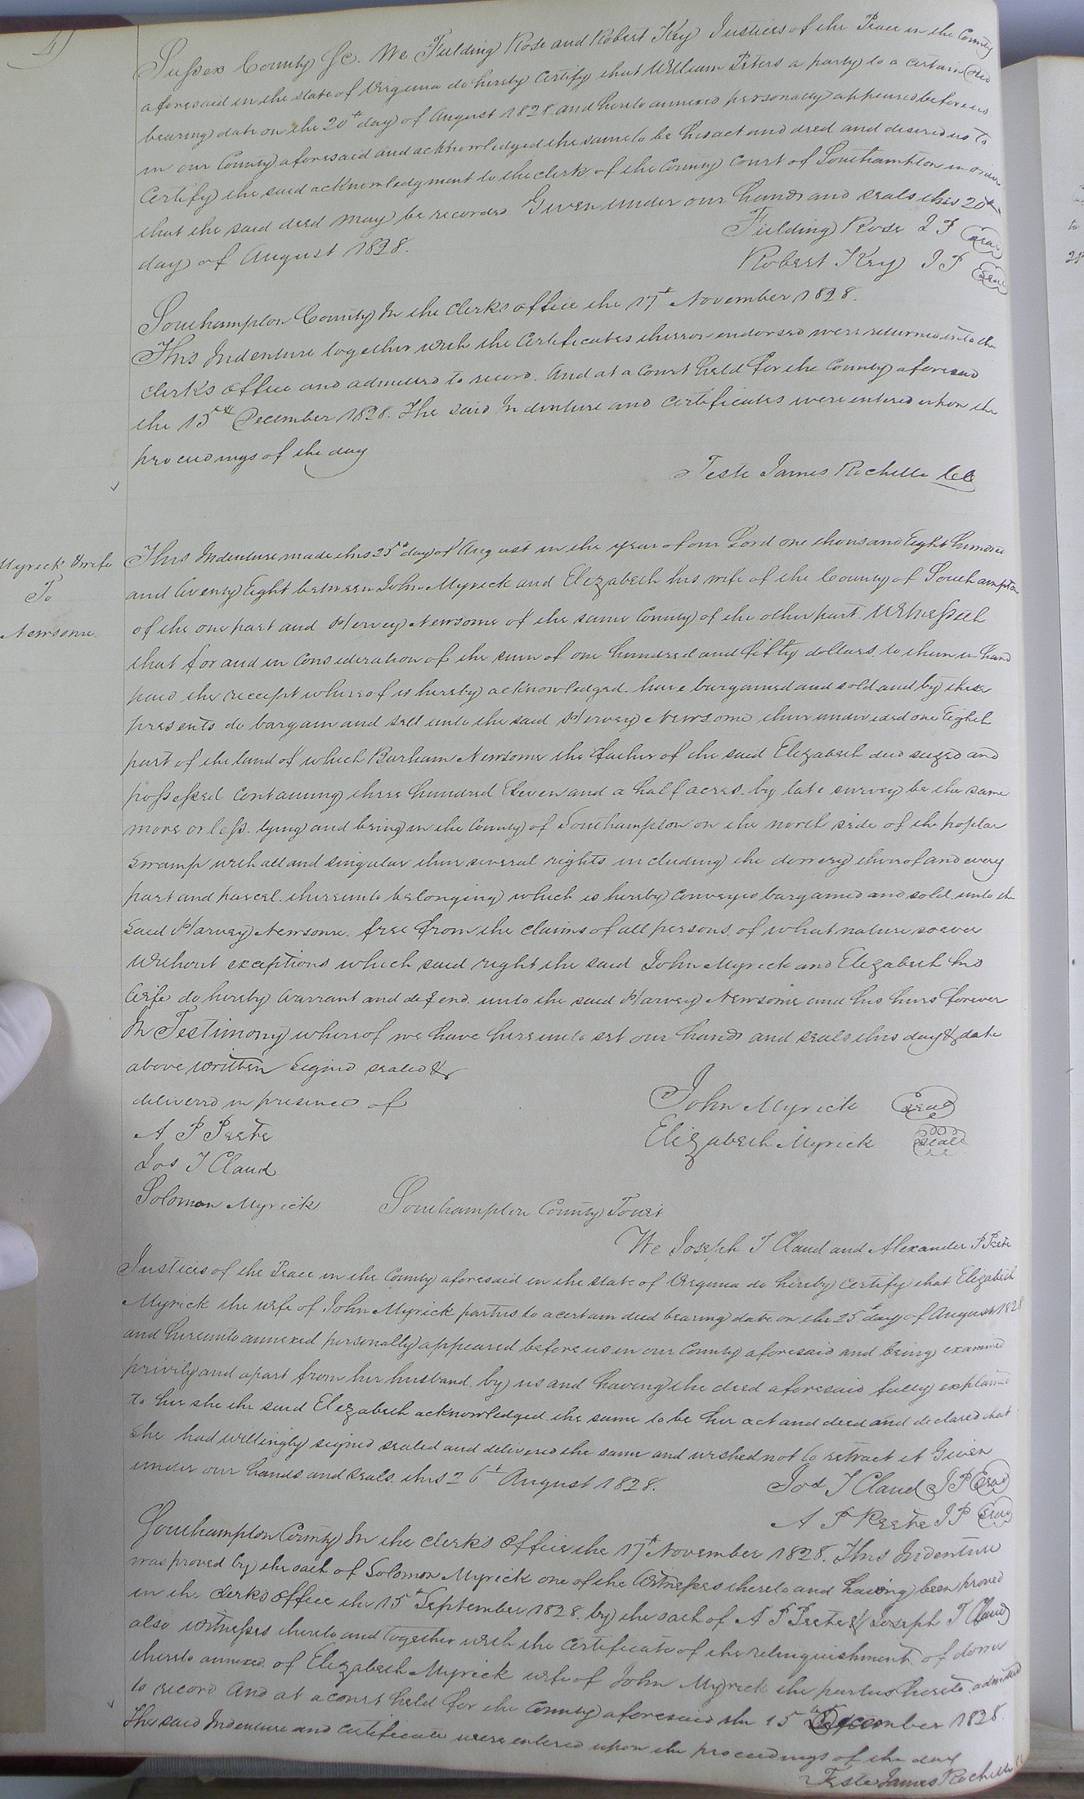 Sussex County Sc. We Fielding Rose and Robert Key Justices of the Peace in the County
aforesaid in the state of Virginia do hereby Certify that William Peters a party to a certain deed
bearing date on the 20th day of August 1828 and hereto annexed personally appeared before us
in our County aforesaid and acknowledged the same to be his act and deed and desired us to
Certify the said acknowledgment to the clerk of the County Court of Southampton in order
that the said deed may be recorded Given under our hands and seals this 20th
day of August 1828.
Fielding Rose J P seal
Robert Key J P seal
Southampton County In the Clerks office the 17t November 1828.
This Indenture together with the Certificates thereon endorsed were returned into the
clerks office and admitted to record. And at a Court held for the County aforesaid
the 15th December 1828. The said Indenture and certificates were entered upon the
proceedings of the day
Teste James Rochelle
Myrick & wife
To
Newsome
This Indenture made this 25th day of August in the year of our Lord one thousand Eight hundred
and twenty Eight between John Myrick and Elizabeth his wife of the County of Southampton
of the one part and Harvey Newsome of the same County of the other part Witnesseth
that for and in consideration of the sum of one hundred and fifty dollars to them in hand
paid the receipt whereof is hereby acknowledged have bargained and sold and by these
presents do bargain and sell unto the said Harvey Newsome their undivided one Eighth
part of the land of which Barham Newsome the father of the said Elizabeth died seized and
possessed containing three hundred Eleven and a half acres by late survey be the same
more or less lying and being in the County of Southampton on the north side of the poplar
swamp with all and singular their several rights including the dowery thereof and every
part and parcel thereunto belonging which is hereby conveyed bargained and sold unto the
said Harvey Newsome free from the claims of all persons of what nature soever
without exceptions which said right the said John Myrick and Elizabeth his
wife do hereby warrant and defend unto the said Harvey Newsome and his heirs forever
In Testimony whereof we have hereunto set our hands and seals this day & date
above written signed sealed &
delivered in presence of
John Myrick seal
A P Peete
Elizabeth Myrick seal
Jos T Claud
Solomon Myrick Southampton County Towit
We Joseph T Claud and Alexander P Peete
Justices of the Peace in the County aforesaid in the state of Virginia do hereby certify that Elizabeth
Myrick the wife of John Myrick parties to a certain deed bearing date on the 25th day of August 1828
and hereunto annexed personally appeared before us in our County aforesaid and being examined
privily and apart from her husband by us and having the deed aforesaid fully explained
to her she the said Elizabeth acknowledged the same to be her act and deed and declared that
she had willingly signed sealed and delivered the same and wished not to retract it Given
under our hands and seals this 26t August 1828.
Jos T Claud J P seal
A P Peete J P seal
Southampton County In the clerks office the 17t November 1828. This Indenture
was proved by the oath of Solomon Myrick one of the Witnesses thereto and having been proved
in the clerks office the 15t September 1828. by the oath of A P Peete & Joseph T Claud
also witnesses thereto and together with the Certificate of the relinquishment of dower
thereto annexed of Elizabeth Myrick wife of John Myrick the parties hereto admitted
to record And at a court held for the County aforesaid the 15th December 1828.
The said Indenture and certificate were entered upon the proceedings of the day
Teste James Rochelle